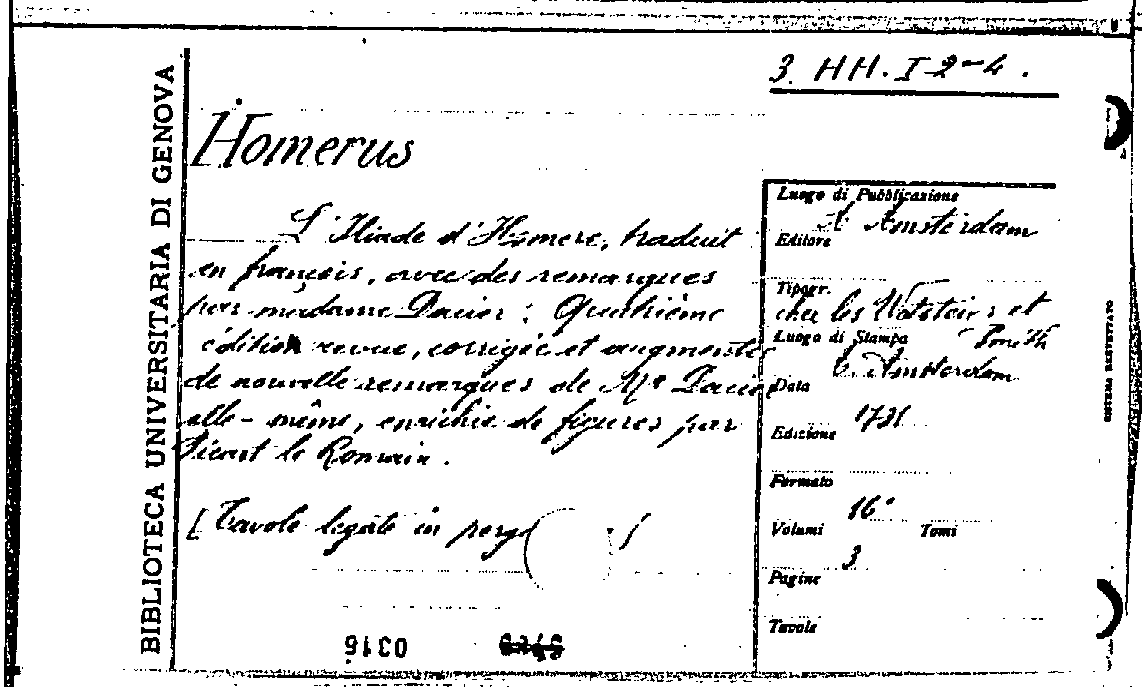 BIBLIOTECA UNIVERSITARIA DI GENOVA
3 HH. I 2-4.
Homerus
L'Iliade d'Homere, traduit
en françois, avec des remarques
par madame Dacier; Quatrième
édition revue, corrigée et augmenté
de nouvelle remarques de Me Dacier
elle-même, enrichie de figures par
Picart le Romain.
[Tavole legate in perg
0316
Luogo di Pubblicazione
A Amsterdam
Editore
Tipogr.
chez les Wetsteins et
Smith
Luogo di Stampa
Amsterdam
Data
1731
Edizione
Formato
16°
Volumi
3
Tomi
Pagine
Tavole